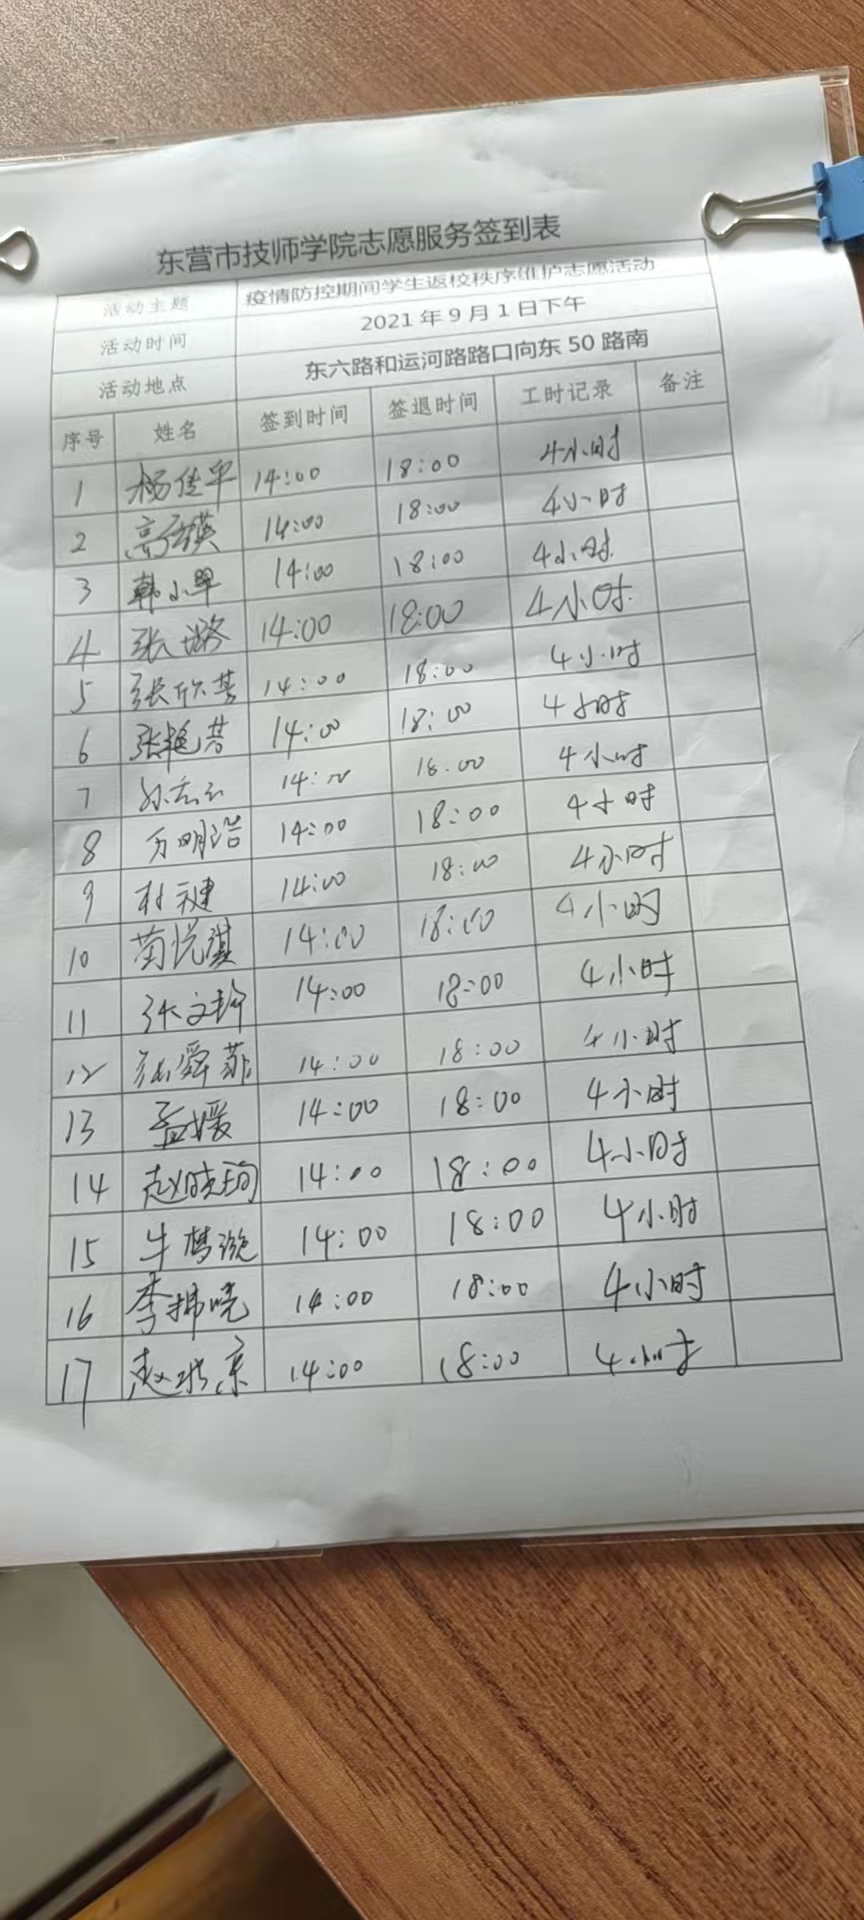 东营市技师学院志愿服务签到表
活动主题 疫情防控期间学生返校秩序维护志愿活动
活动时间 2021年9月1日下午
活动地点 东六路和运河路路口向东50路南
序号 姓名 签到时间 签退时间 工时记录 备注
1 杨佳平 14:00 18:00 4小时
2 14:00 18:00 4小时
3 韩小翠 14:00 18:00 4小时
4 张璐 14:00 18:00 4小时
5 张欣芸 14:00 18:00 4小时
6 张艳芸 14:00 18:00 4小时
7 14:00 18:00 4小时
8 万明浩 14:00 18:00 4小时
9 14:00 18:00 4小时
10 14:00 18:00 4小时
11 张文 14:00 18:00 4小时
12 张舜菲 14:00 18:00 4小时
13 孟媛 14:00 18:00 4小时
14 赵晓珣 14:00 18:00 4小时
15 牛梦 14:00 18:00 4小时
16 李 14:00 18:00 4小时
17 赵 14:00 18:00 4小时